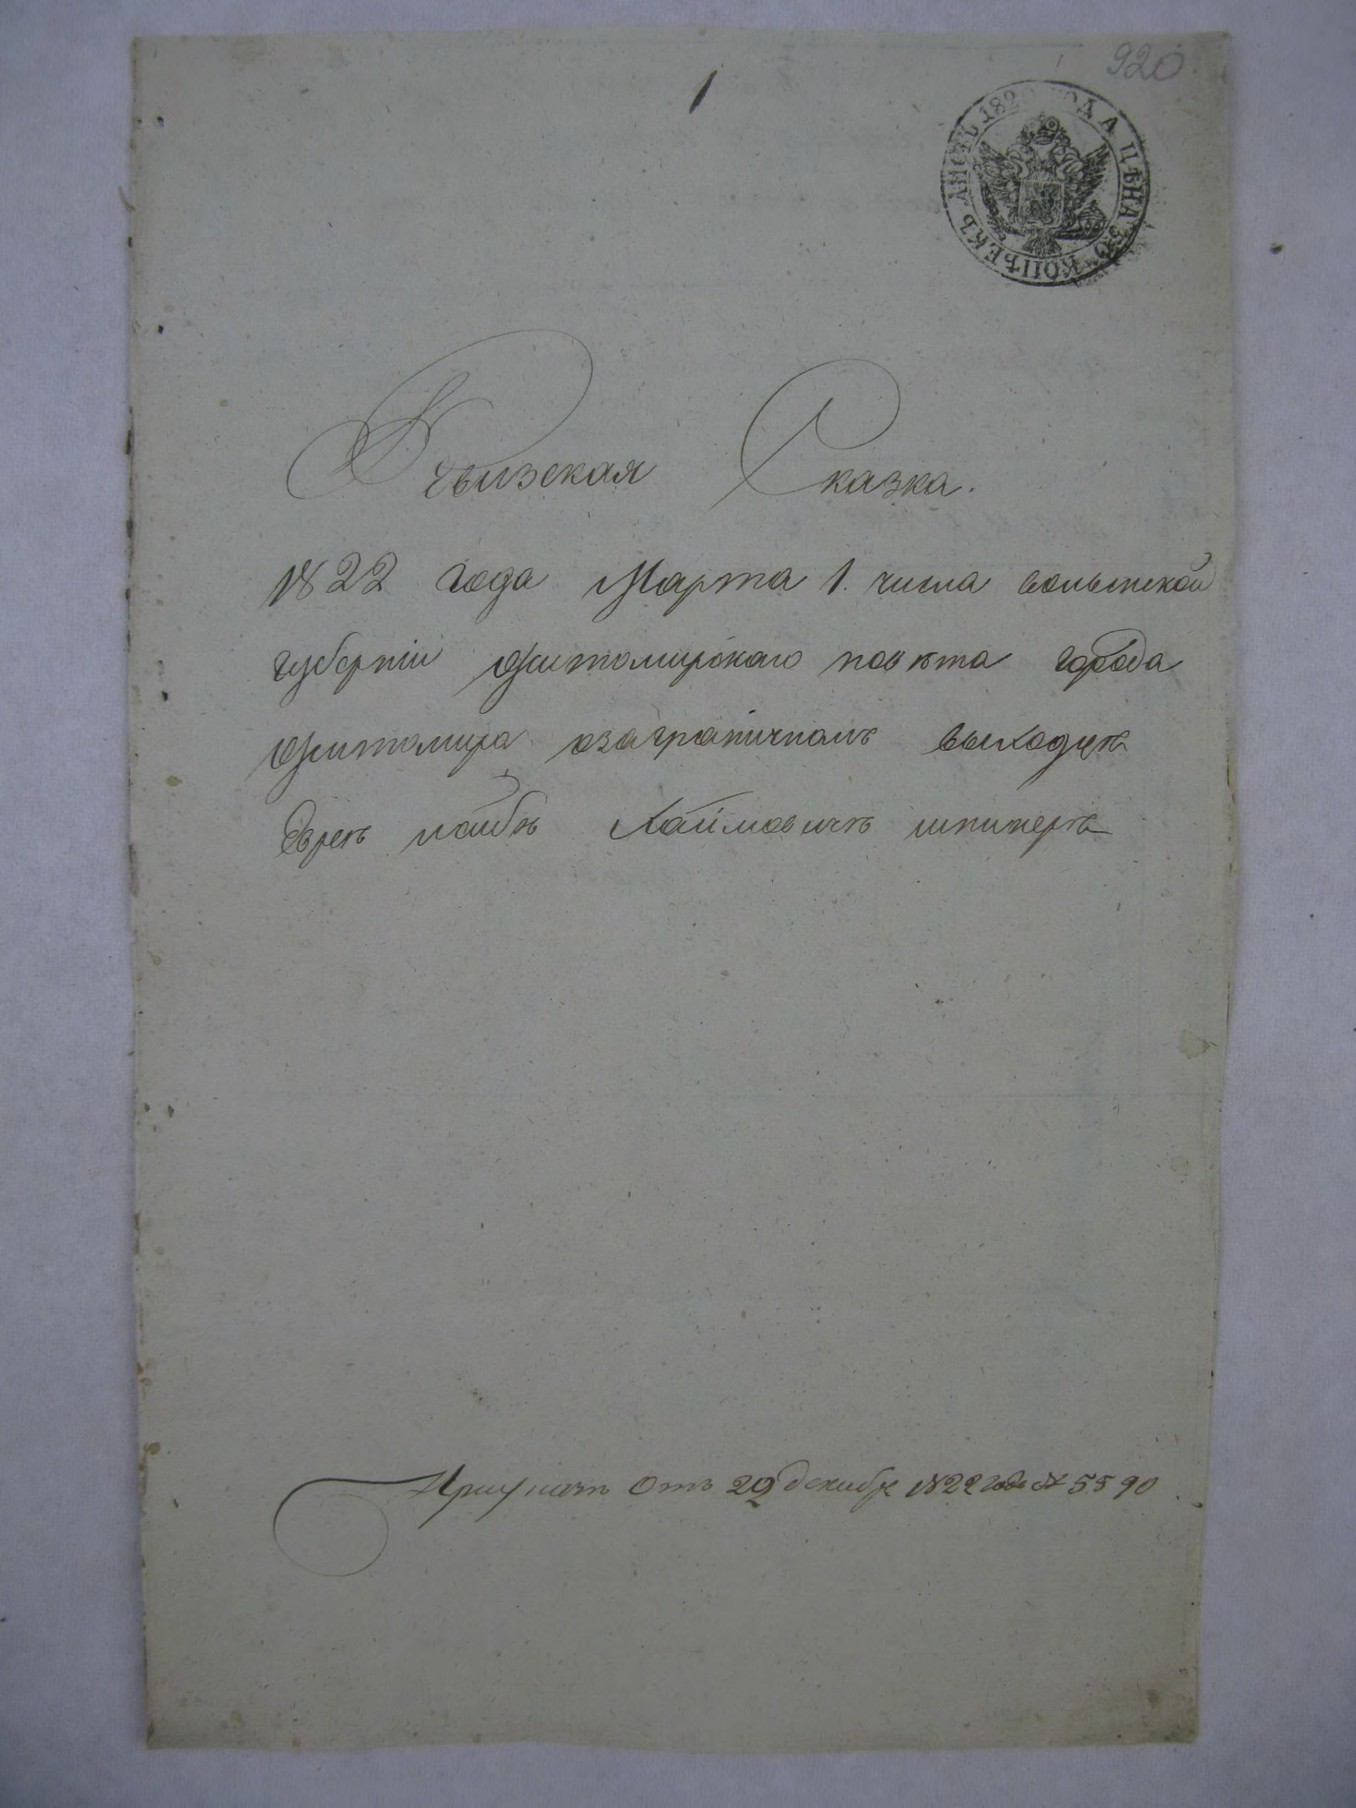 920.
1
ЛИСТЪ 182 ГОДА ЦѢНА 50 КОПѢЕКЪ
Ревизская Сказка.
1822 года Марта 1. числа волынской
губернiи Житомирского повѣта города
Житомира озаграничномъ выходце
Еврею Хаймовичъ шпинеръ
отъ 29 декабря 1822 года № 5590